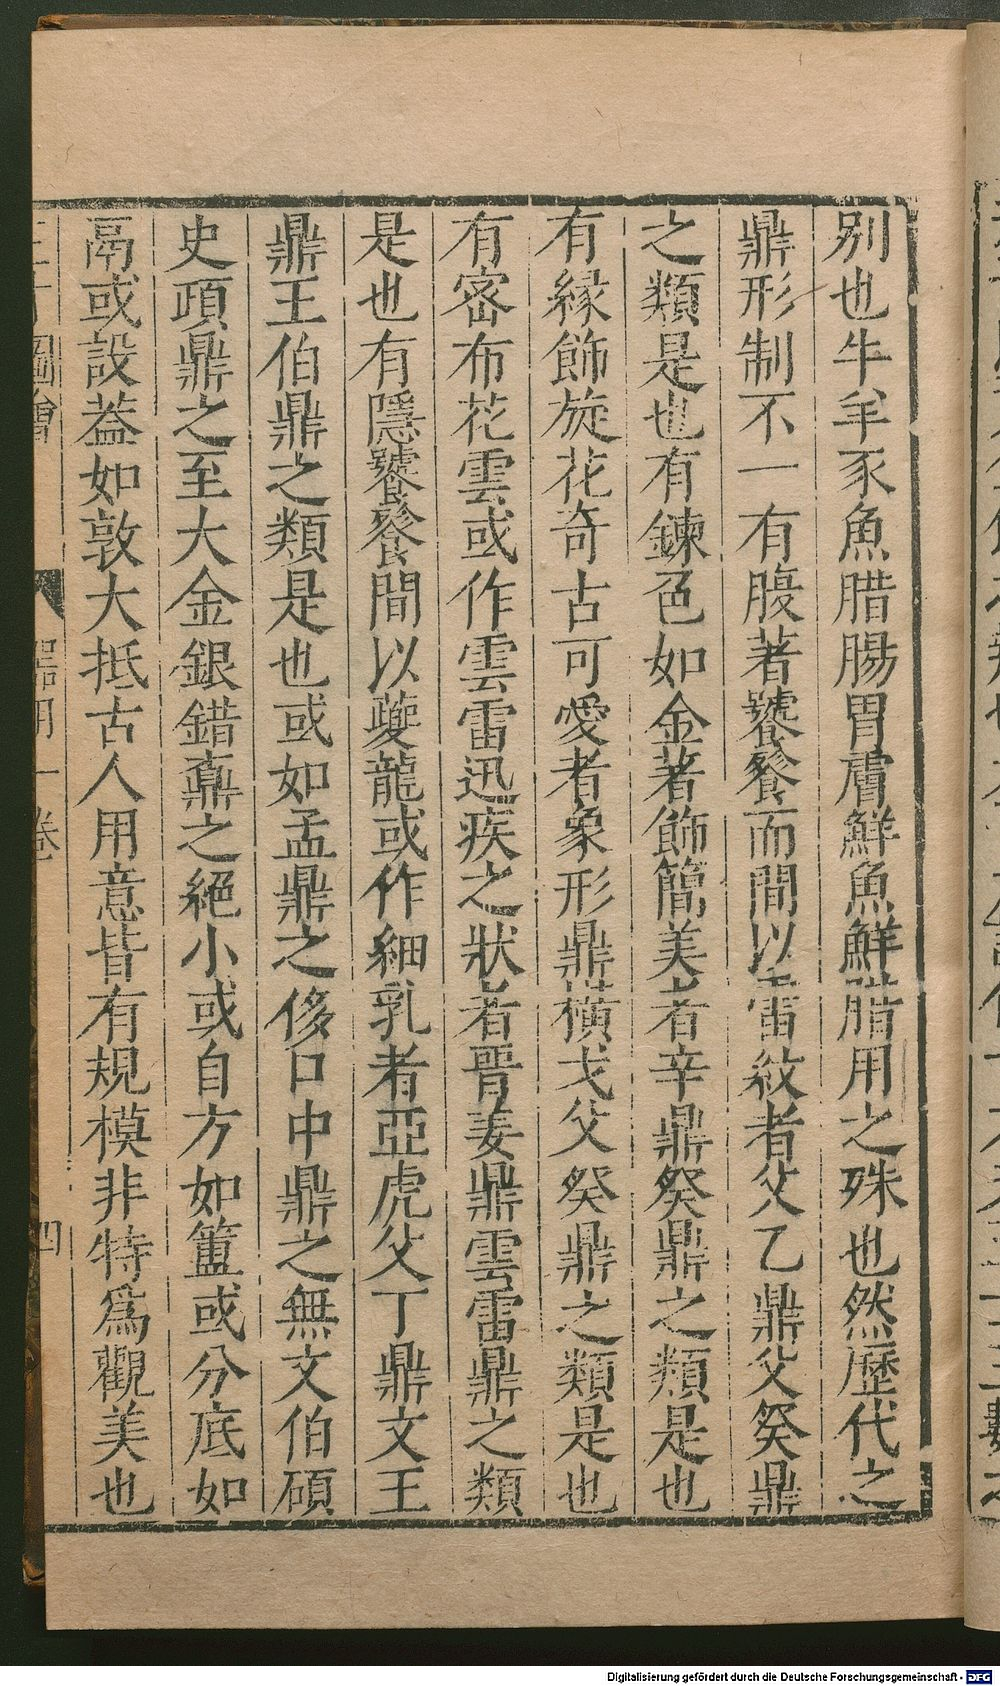 別也牛羊豕魚腊腸胃膚鮮魚鮮腊用之殊也然歷代之
鼎形制不一有腹著饕餮而間以雷紋者父乙鼎父癸鼎
之類是也有鍊色如金著飾簡美者辛鼎癸鼎之類是也
有緣飾旋花奇古可愛者象形鼎橫戈父癸鼎之類是也
有密布花雲或作雲雷迅疾之狀者晉姜鼎雲雷鼎之類
是也有隱饕餮間以夔龍或作細乳者亞虎父丁鼎文王
鼎王伯鼎之類是也或如孟鼎之侈口中鼎之無文伯碩
史頙鼎之至大金銀錯鼒之絕小或自方如簠或分底如
鬲或設葢如敦大抵古人用意皆有規模非特爲觀美也
圖會 器用一卷 四
Digitalisierung gefördert durch die Deutsche Forschungsgemeinschaft - DFG